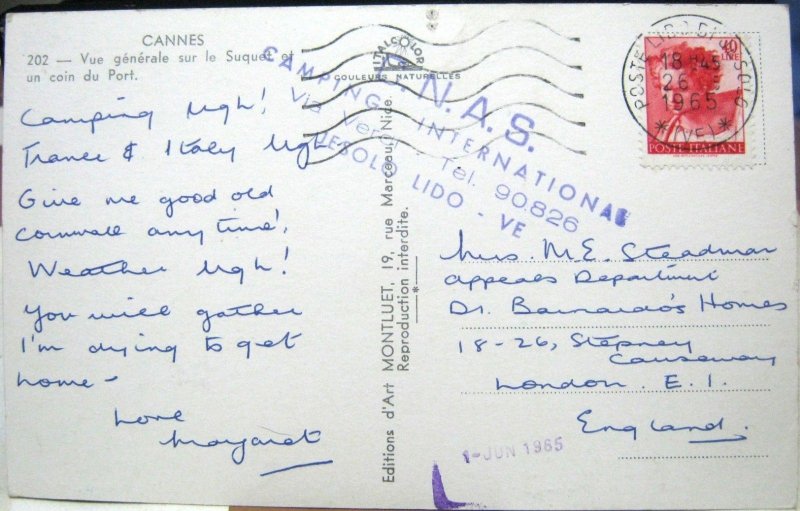 CANNES
202 — Vue générale sur le Suquet et
un coin du Port.
ITALCOLOR
COULEURS NATURELLES
Camping Ugh!
France & Italy Ugh
Give me good old
Cornwall any time!
Weather Ugh!
You will gather
I'm dying to get
home -
Love
Margaret
Editions d'Art MONTLUET, 19, rue Marceau, Nice.
Reproduction interdite.
*
C.N.A.S.
CAMPING INTERNATIONAL
Via Tel. 90.826
JESOLO LIDO - VE
40
LIRE
POSTE ITALIANE
POSTE LIDO DI JESOLO
18
26
1965
*(VE)*
Mrs. M.E. Steadman
Appeals Department
Dr. Barnardo's Homes
18-26, Stepney
Causeway
London. E.1.
England.
1-JUN 1965